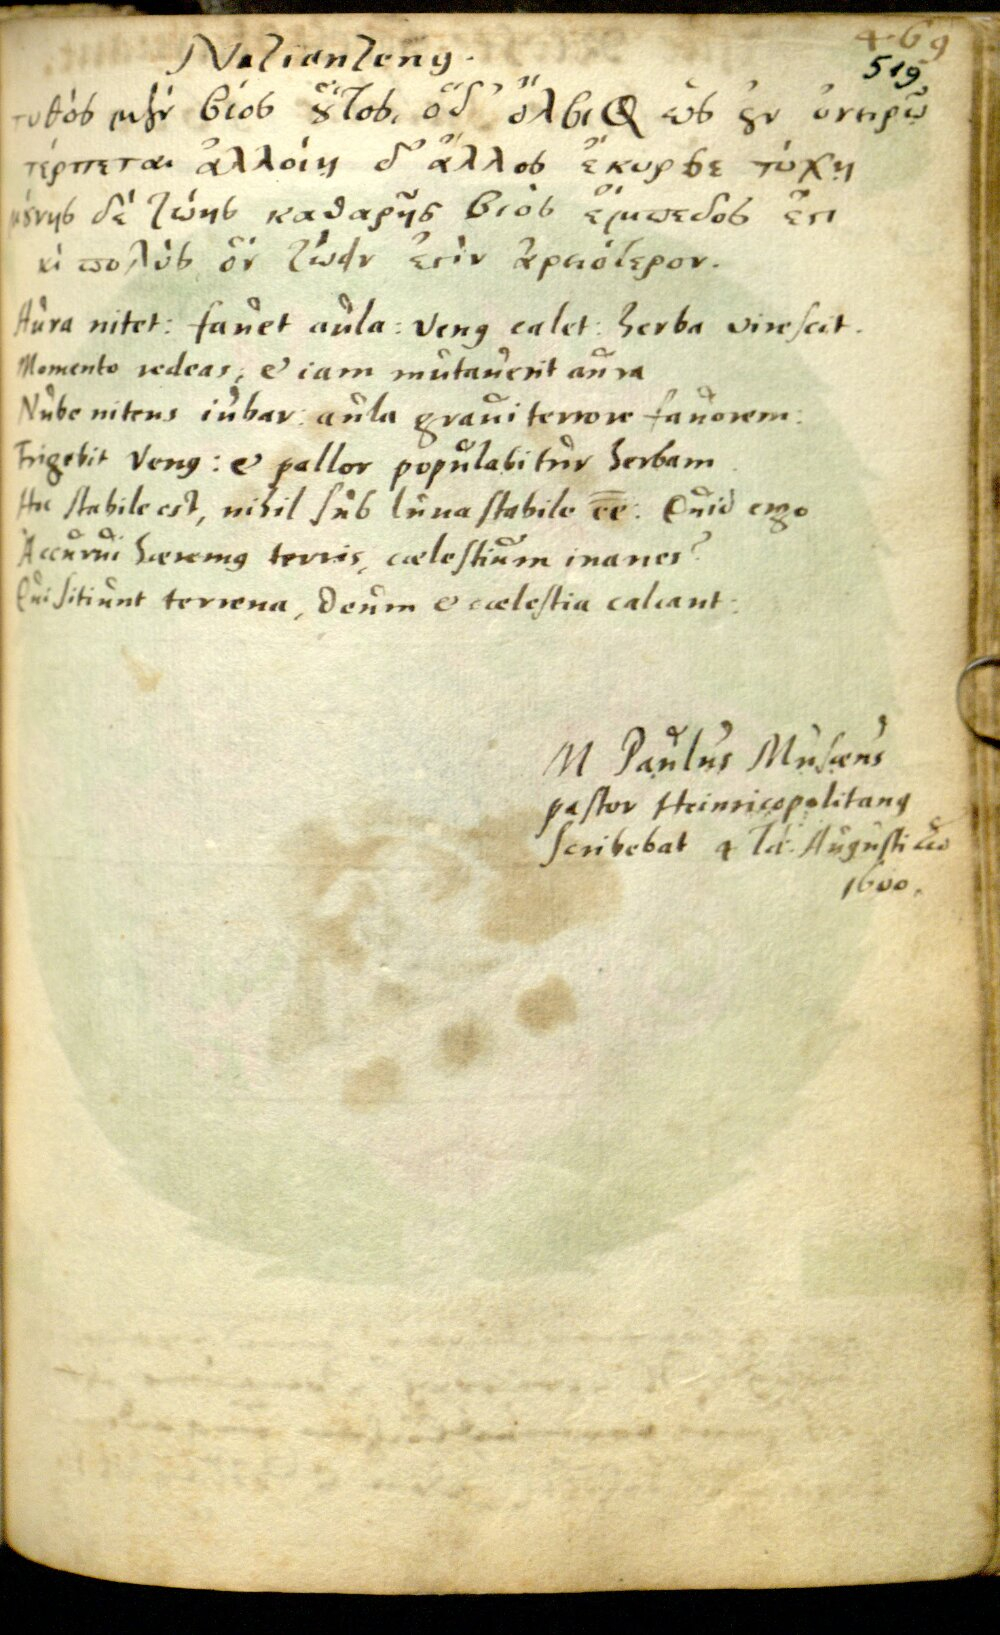 Nazianzeng.
469
519
τυθός μὲν βίος οὗτος, ὅδ' ὄλβιος ὡς ἐν ὀνείρῳ
τέρπεται ἀλλοίῃ δ' ἄλλος ἔκυρσε τύχῃ
μόνης δὲ ζώης καθαρῆς βιὸς ἔμπεδος ἐστι
κὶ πολὺς ὃν ζώειν ἐστὶν ἀρειότερον.
Aura nitet: fauet aula: veng calet: herba virescit.
Momento redeas, & iam mutauerit aura
Nube nitens iubar: aula graui terrore fauorem:
Frigebit veng: & pallor populabitur herbam
Hic stabile est, nihil sub luna stabile ēē: Quid ergo
Accurui hæremg terris, cælestium inanes?
Qui sitiunt terrena, Deum & cælestia calcant:
M Paulus Musæus
pastor Heinricopolitang
scribebat 4 Id. Augusti
1600.